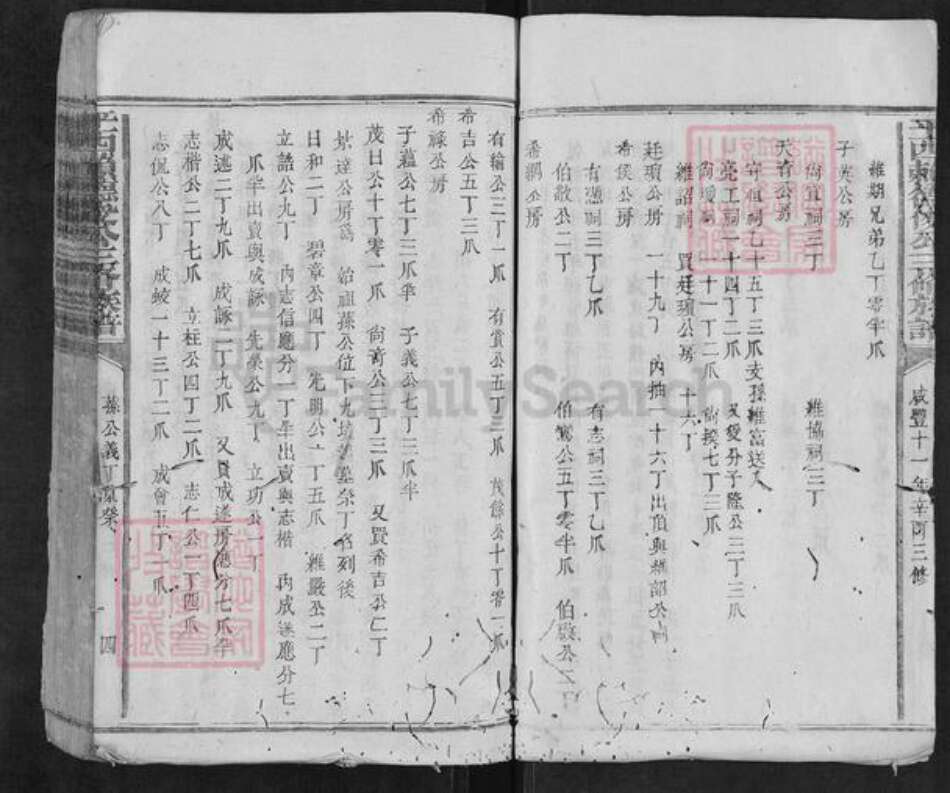 維期兄弟乙丁零半爪
子英公房
尚宜祠三丁 維協祠三丁
天育公房
守恒祠乙十五丁三爪支孫維富送入
亮工祠一十四丁二爪 又愛分子隆公三丁三爪
尚瑷祠一十一丁二爪 尚揆七丁三爪
維詔祠 買廷瓆公房一十六丁
廷瓆公房 一十九丁 內抽一十六丁出頂與維詔公祠
希侯公房
有憑祠三丁乙爪 有志祠三丁乙爪
伯敬公二丁 伯鸞公五丁零半爪 伯公二丁
希公房
有輪公三丁一爪 有賞公五丁三爪 茂餘公十丁零一爪
希吉公五丁三爪
希祿公房
子蘊公七丁三爪半 子義公七丁三爪半
茂日公十丁零一爪 尚奇公三丁三爪 又買希吉公仁丁
景達公房為 始祖蓀公位下九墳義塋祭丁名列後
日和二丁 碧章公四丁 光明公一丁五爪 維嚴公二丁
立誥公九丁 內志信應分一丁半出賣與志楷 內成遂應分七
爪半出賣與成詠 先榮公九丁 立功公一丁
成述二丁九爪 成詠二丁九爪 又買成遂房應分七爪半
志楷公二丁七爪 立柱公四丁二爪 志仁公一丁四爪
志侃公八丁 成蛟一十三丁二爪 成會五丁一爪
咸豐十一年辛酉三修
蓀公義丁凜祭
四
FamilySearch